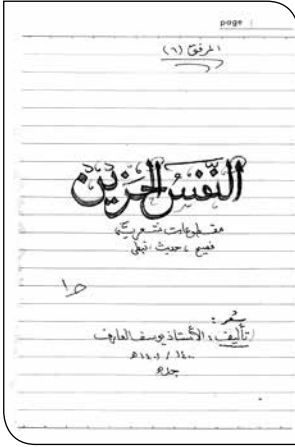 page
المرفق (٦)
النَّفسُ الحَزِين
مقطوعات شعرية
فصيح ، حديث ، نبطي
ط١
شعر :
تأليف : الأستاذ يوسف العارف
١٤٠٠ / ١٤٠١ هـ
جده